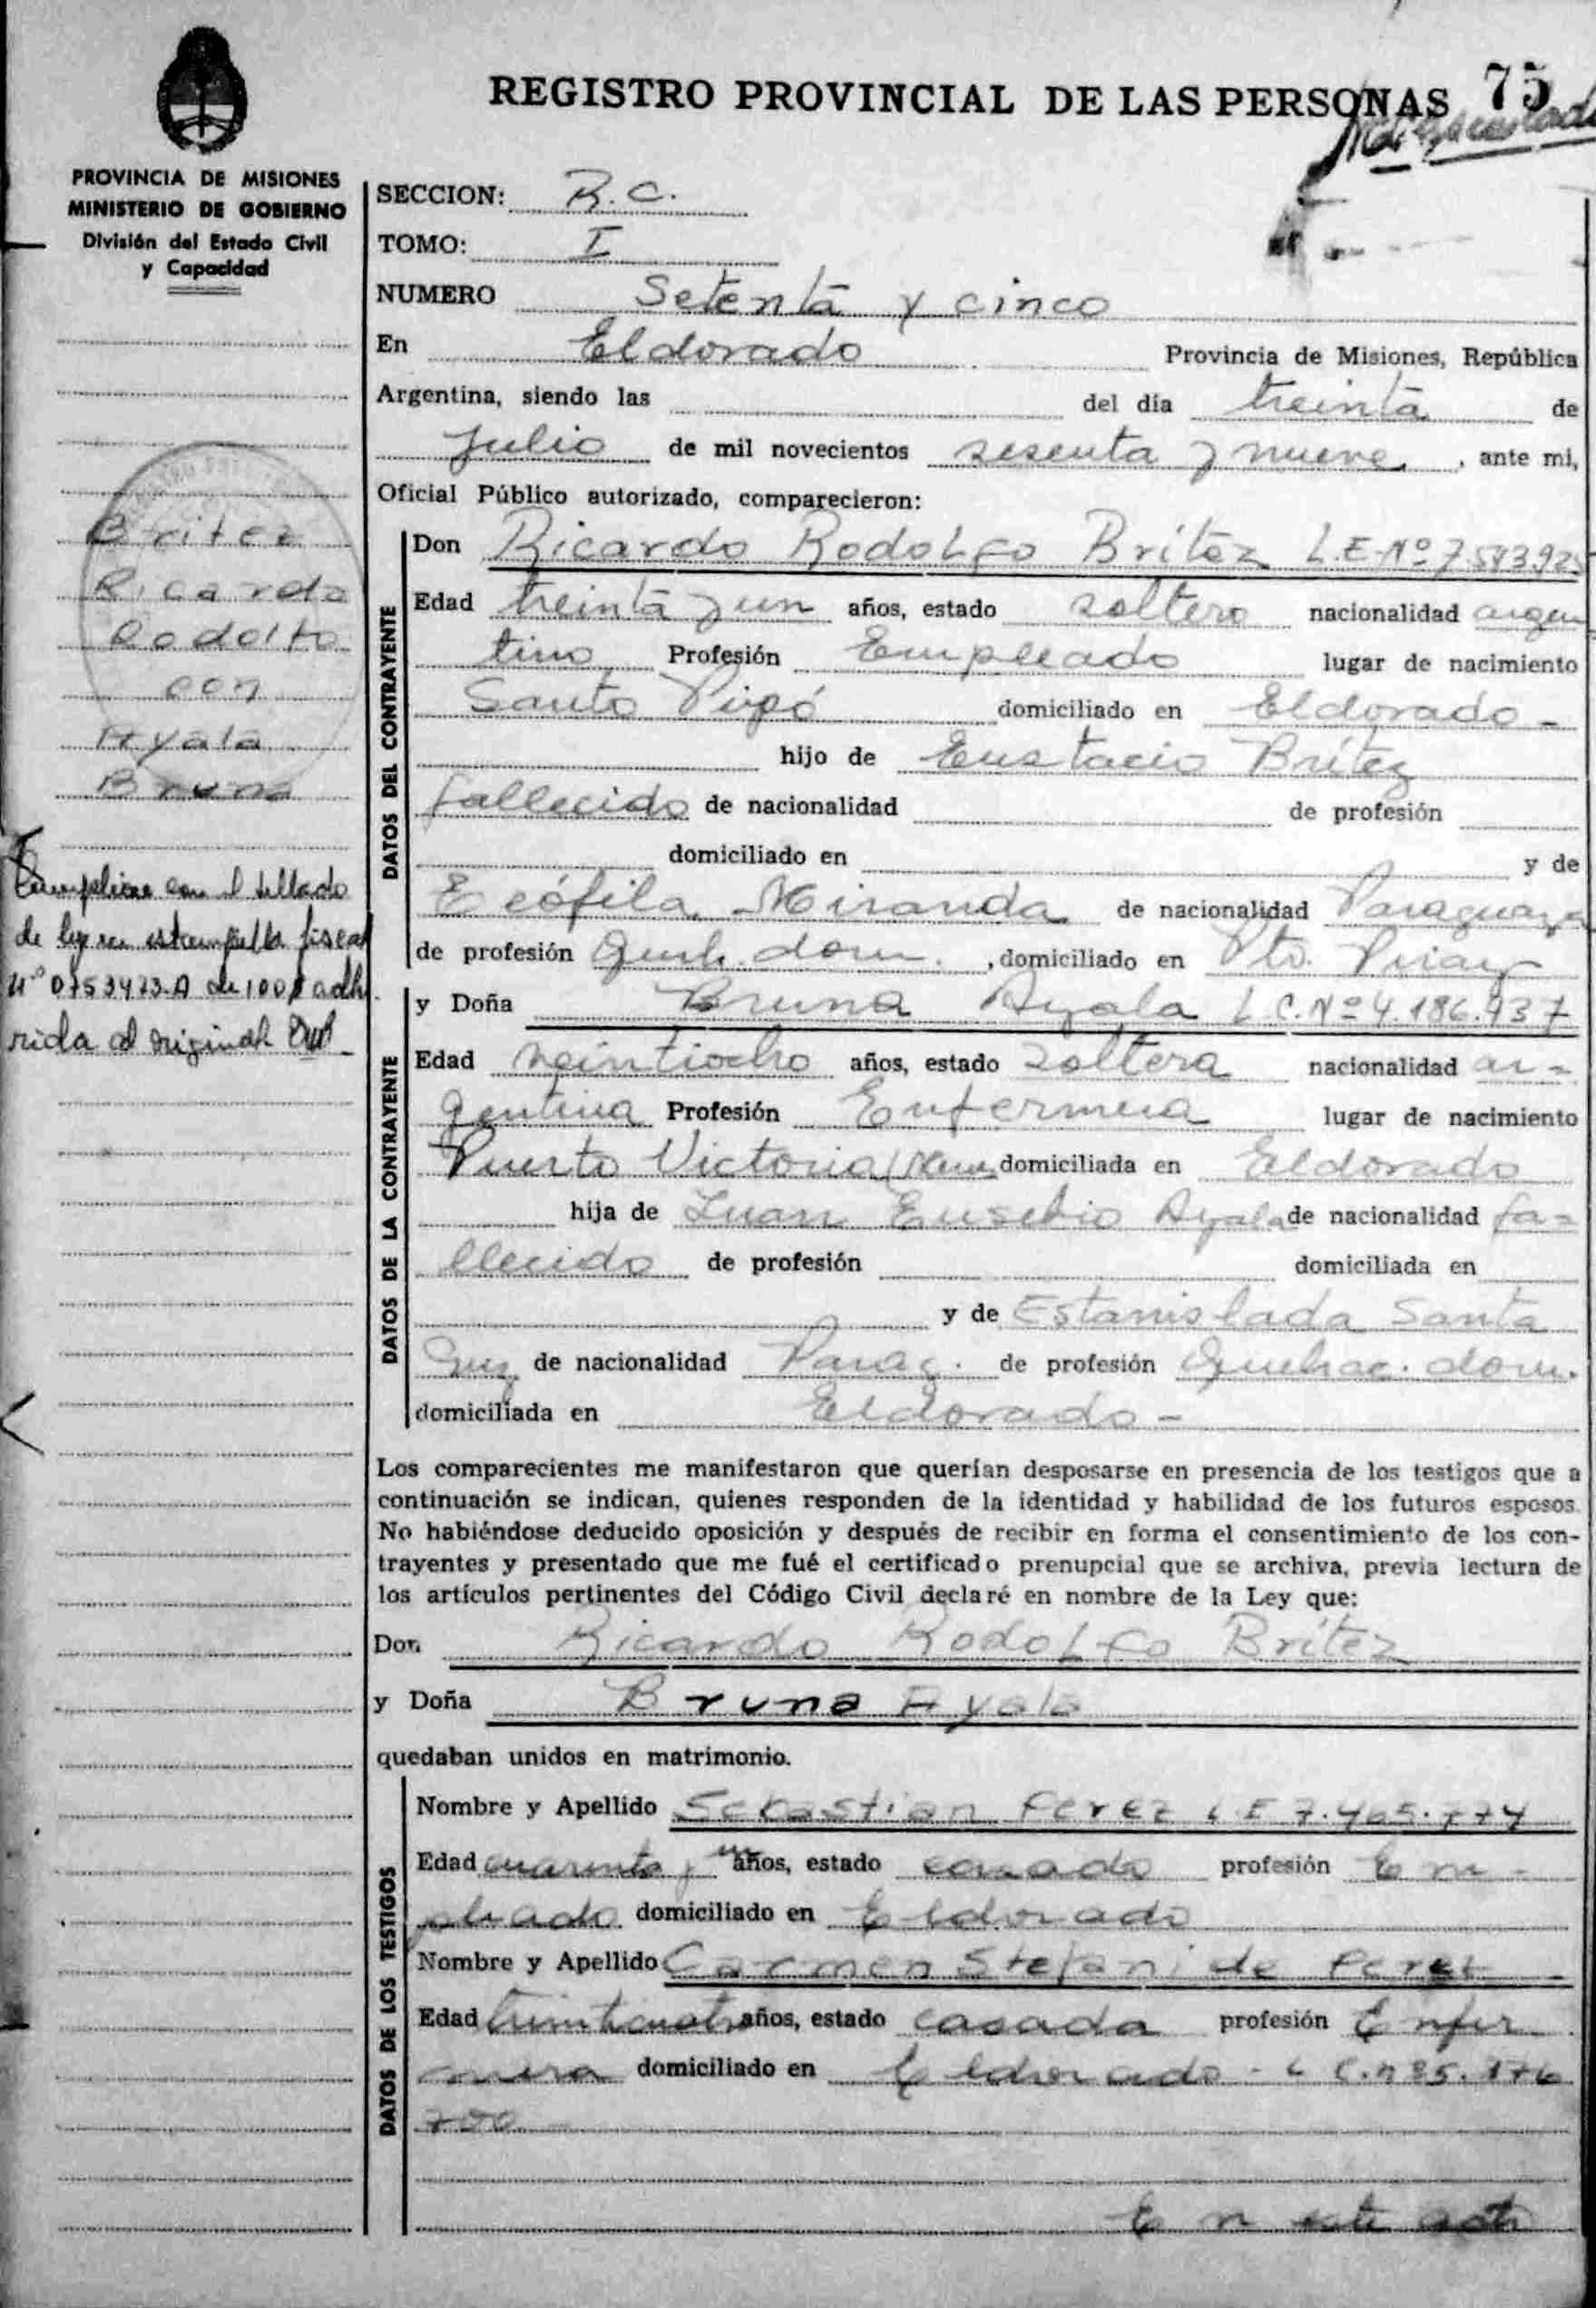 REGISTRO PROVINCIAL DE LAS PERSONAS 75
PROVINCIA DE MISIONES
MINISTERIO DE GOBIERNO
División del Estado Civil
y Capacidad
SECCION: R.C.
TOMO: I
NUMERO Setenta y cinco
En Eldorado Provincia de Misiones, República
Argentina, siendo las del día treinta de
Julio de mil novecientos sesenta y nueve, ante mi,
Oficial Público autorizado, comparecieron:
Britez
Ricardo
Rodolfo
con
Ayala
Bruna
Cumpliose con el sellado
de ley en estampilla fiscal
Nº 0753473-A de 100 $ adhe
rida al original
DATOS DEL CONTRAYENTE
Don Ricardo Rodolfo Britez L.E.Nº 7.593.925
Edad treinta y un años, estado soltero nacionalidad argen
tino Profesión Empleado lugar de nacimiento
Santo Pipó domiciliado en Eldorado -
hijo de Eustacio Britez
fallecido de nacionalidad de profesión
domiciliado en y de
Eeófila Miranda de nacionalidad Paraguaya
de profesión Queh. dom. , domiciliado en Pto. Piray
DATOS DE LA CONTRAYENTE
y Doña Bruna Ayala L.C.Nº 4.186.937
Edad veintiocho años, estado soltera nacionalidad ar-
gentina Profesión Enfermera lugar de nacimiento
Puerto Victoria domiciliada en Eldorado
hija de Juan Eusebio Ayala de nacionalidad fa-
llecido de profesión domiciliada en
y de Estanislada Santa
Cruz de nacionalidad Parag. de profesión Quehac. dom.
domiciliada en Eldorado -
Los comparecientes me manifestaron que querían desposarse en presencia de los testigos que a
continuación se indican, quienes responden de la identidad y habilidad de los futuros esposos.
No habiéndose deducido oposición y después de recibir en forma el consentimiento de los con-
trayentes y presentado que me fué el certificado prenupcial que se archiva, previa lectura de
los artículos pertinentes del Código Civil declaré en nombre de la Ley que:
Don Ricardo Rodolfo Britez
y Doña Bruna Ayala
quedaban unidos en matrimonio.
DATOS DE LOS TESTIGOS
Nombre y Apellido Sebastian Perez L E 7.465.774
Edad cuarenta y un años, estado casado profesión Em-
pleado domiciliado en Eldorado
Nombre y Apellido Carmen Stefani de Perez -
Edad treinticuatro años, estado casada profesión Enfer
mera domiciliado en Eldorado - L C.
En este acto